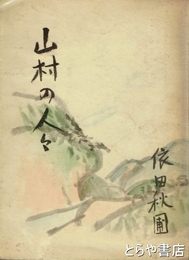 山村の人々
依田秋圃
とらや書店